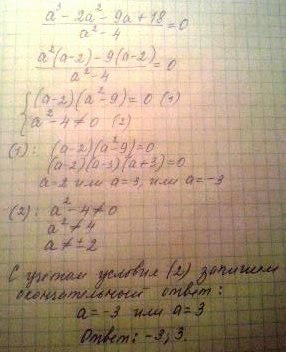 a³ - 2a² - 9a + 18 / a² - 4 = 0
a²(a-2) - 9(a-2) / a² - 4 = 0
{ (a-2)(a²-9) = 0 (1)
a² - 4 ≠ 0 (2)
(1): (a-2)(a²-9) = 0
(a-2)(a-3)(a+3) = 0
a=2 или a=3, или a=-3
(2): a² - 4 ≠ 0
a² ≠ 4
a ≠ ±2
С учетом условия (2) запишем
окончательный ответ:
a = -3 или a = 3
Ответ: -3; 3.